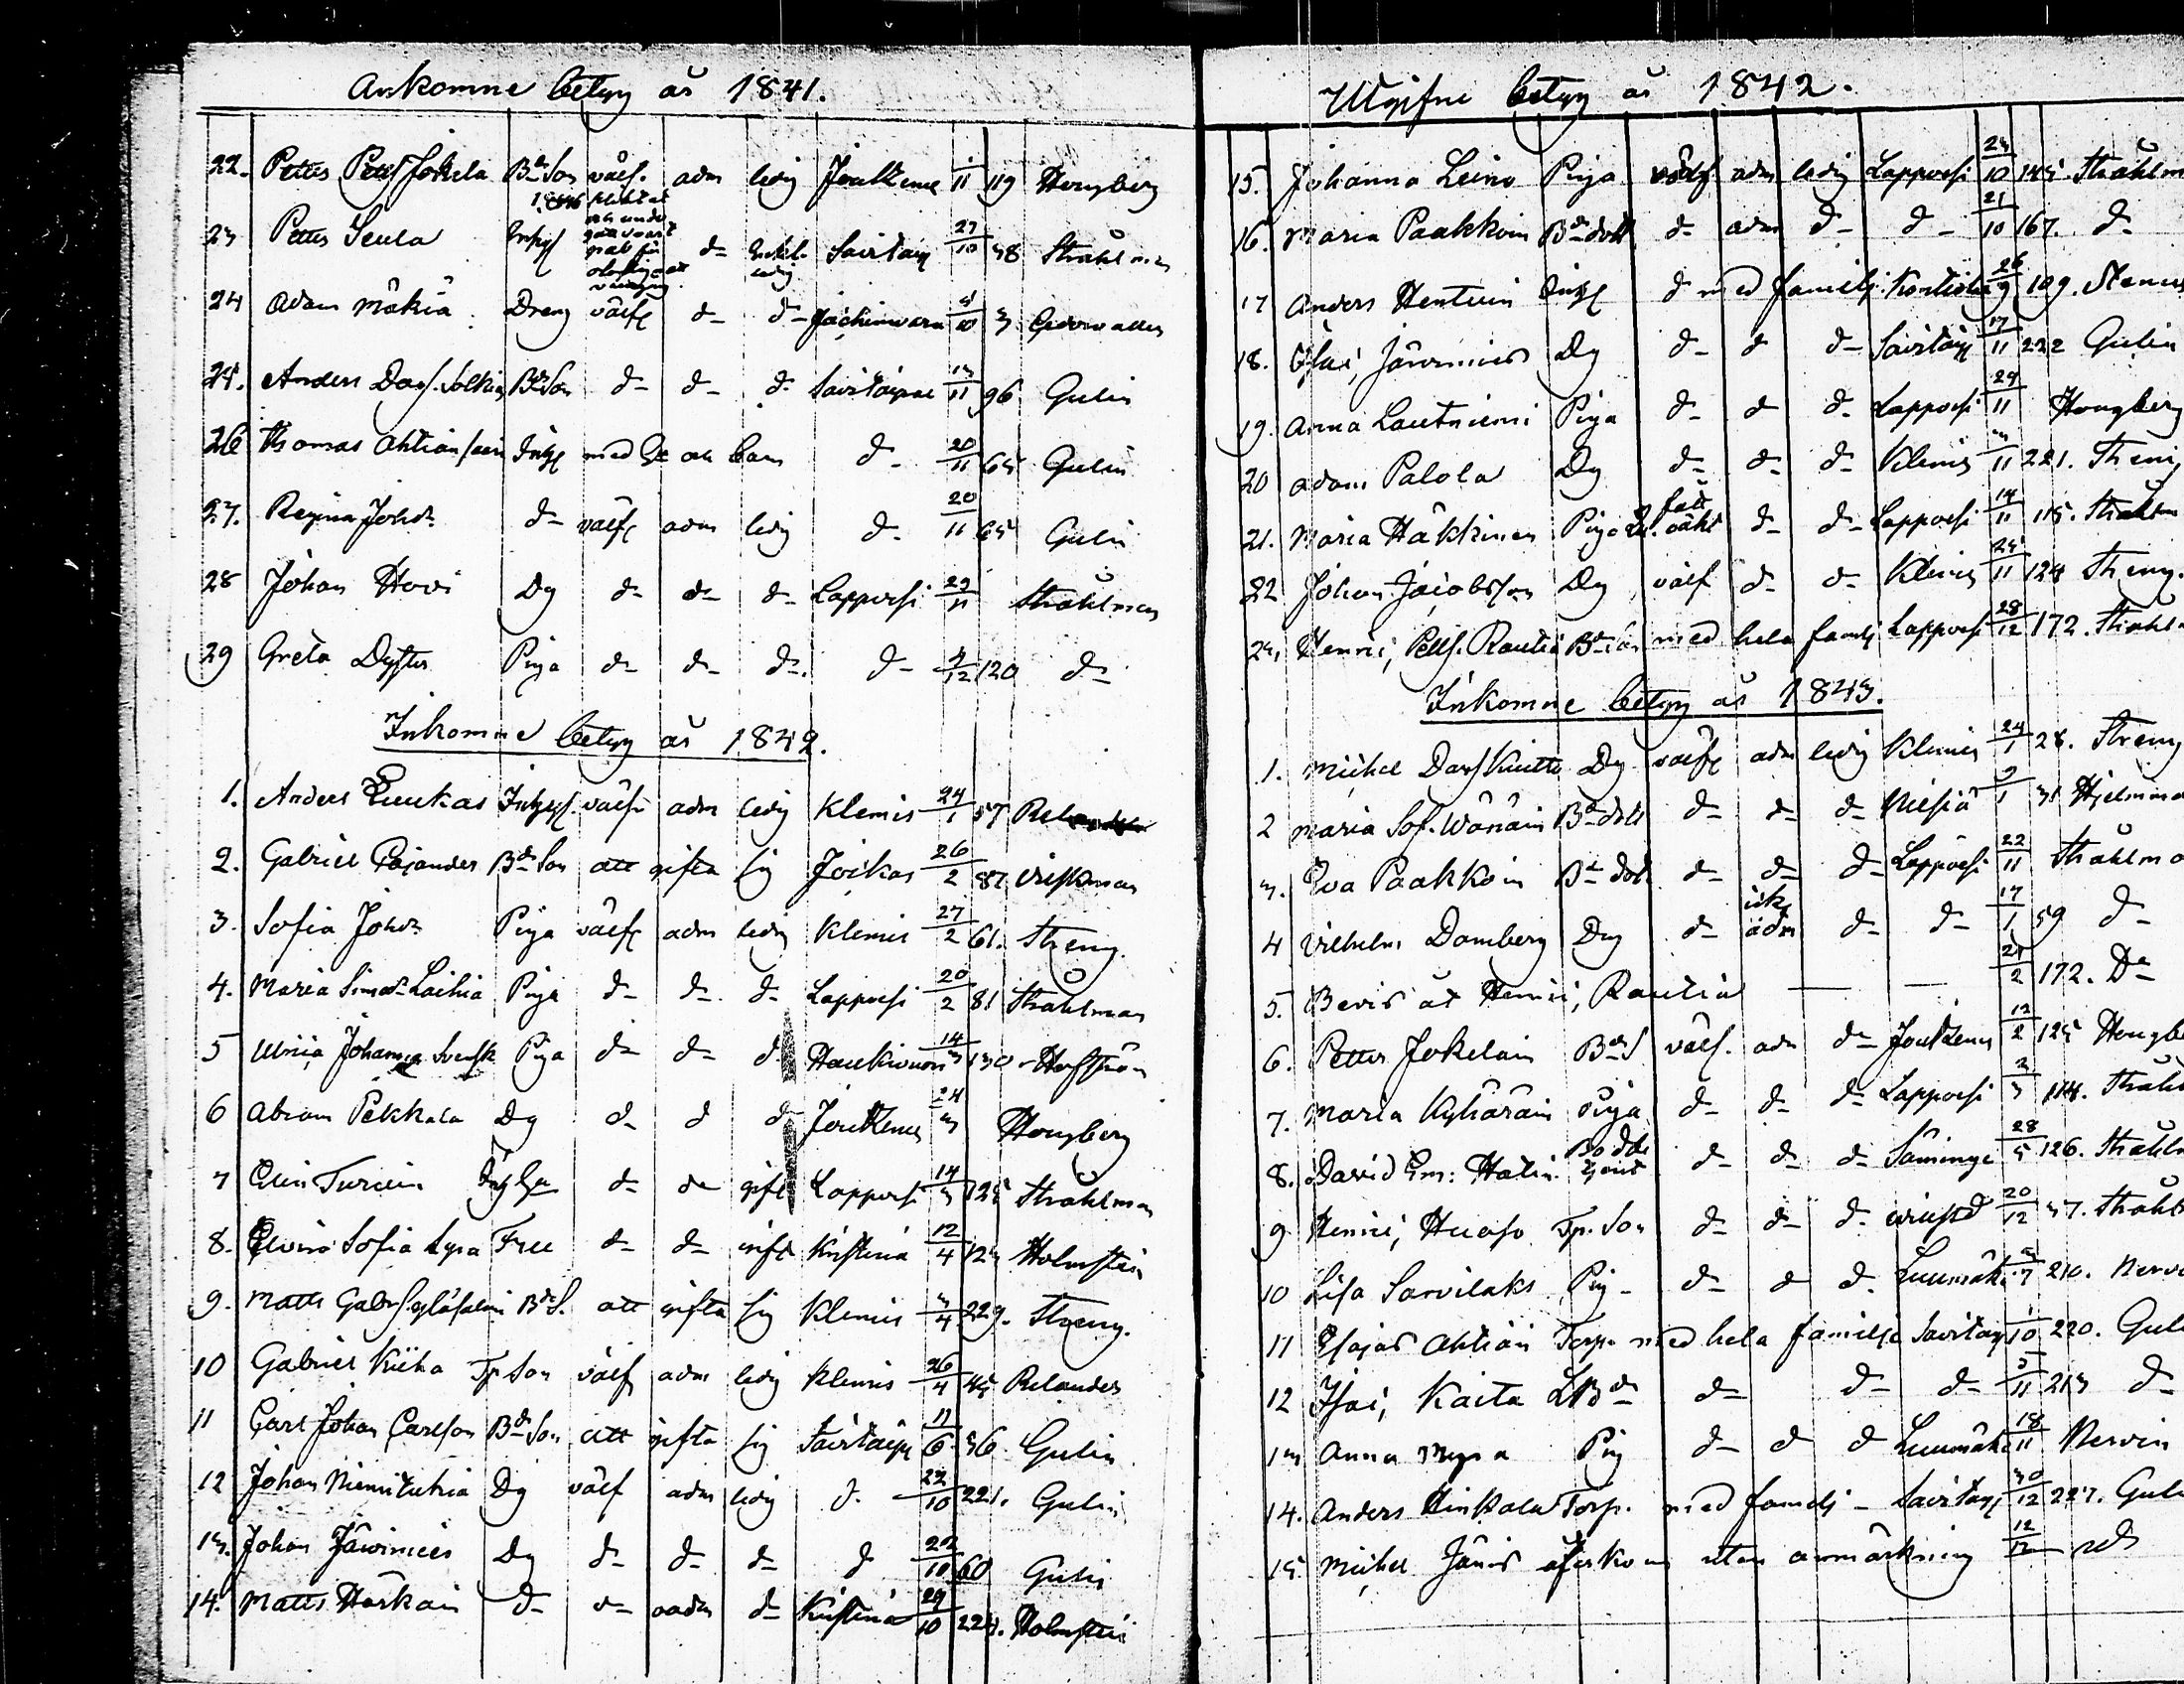 Ankomne betyg år 1841.
22. Petter Petts Jokela Bde Son välf. adm ledig Joutzeno 1/11 119 Hougberg
23 Petter Seula Inhys d- Enkl. ledig Savitaip 27/10 38 Strählman
24 Adam Mäkiä Dreng välfr d- d- Jäckimvara 4/10 3
25. Anders Dav. Solkin Bde Son d- d- d- Savitaipal 13/11 96 Gulin
26 Thomas Ahtiainen Inhys med och barn d- 20/11 65 Gulin
27. Regina Johdr d- välfr adm ledig d- 20/11 65 Gulin
28 Johan Hovi Dg d- d- d- Lappvesi 29/11 Strählman
29 Greta Dyster Piga d- d- d- d- 4/12 120 d-
Inkomne betyg år 1842.
1. Anders Luukas Inhys välfr adm ledig Klemis 24/1 57 Relander
2. Gabriel Pajander Bde Son att gifta sig Joikas 26/2 87 Weisman
3. Sofia Johdr Piga välfr adm ledig Klemis 27/2 61. Streng.
4. Maria Simsdr Laihia Piga d- d- d- Lappvesi 20/2 81 Strahlman
5 Ulrica Johanna Svensk Piga d- d- d Haukivuori 14/3 130 Hoffrén
6 Abram Pekkala Dg d- d d Joutzeno 24/3 Hougberg
7 Elin Turcin d- d- gift Lappvesi 14/3 125 Strählman
8. Elvira Sofia Lyra Fru d- d- gift Kristina 12/4 123 Holmstein
9. Matts Gabrs. Bde S. att gifta sig Klemis 3/4 229. Streng.
10 Gabriel Kiiha Tp Son välf adm ledig Klemis 26/4 45 Relander
11 Carl Johan Carlson Bde Son att gifta sig Savitaip 17/6 36. Gulin
12 Johan Niemitukia Dg välf adm ledig d. 22/10 221. Gulin
13. Johan Jäwinies Dg d- d- d- d 22/10 60 Gulin
14. Matts Härkäin d- d- oadm d- Kristina 29/10 224. Holmstein
Utgifne betyg år 1842.
15. Johanna Leino Piga välfr adm ledig Lappvesi 23/10 145. Strählm
16. Maria Paakkoin Bde dott d- adm d- d- 21/10 167. d-
17 Anders Hentuin Inhys d med familj. Kontiola 26/9 109. Stenius
18. Esai, Jäwinies Dg d- d d- Savitaip 17/11 232 Gulin
19. Anna Lautniemi Piga d- d d- Lappvesi 29/11 Hougberg
20 Adam Palola Dg d- d- d- Klemis 3/11 221. Streng
21. Maria Häkkinen Piga fått oäkt d- d- Lappvesi 14/11 115. Strählm
22 Johan Jacobsson Dg välf d- d- Klemis 25/11 124 Streng.
23, Henric, Petts. Rautia Bde med hela familj Lappvesi 28/12 172. Strähl
Inkomne betyg år 1843.
1. Michel Davs Kuitto Dg välfr adm ledig Klemis 24/1 28. Streng
2 Maria Sof. Wänäin Bde dott d- d- d- Nilsiä 9/1 31 Hjelmma
3. Eva Paakkoin Bde dott d- d- d- Lappvesi 22/11 Strählma
4 Vilhelm Domberg Dg d- icke adm d- d- 17/1 59 d-
5. Bevis åt Henric, Rautia — — 21/2 172. Do
6. Petter Jokelain Bde S välf. adm d- Joutzeno 12/2 125 Hougbe
7. Maria Kyhäräin Piga d- d- d- Lappvesi 2/3 114. Strähl
8. David Em: Hälin d- d- d- Säminge 28/5 126. Strähl
9. Henric, Huaso Tp. Son d- d- d- 20/12 37. Strähl
10 Lisa Sarvilaks Pig- d- d d. Luumäki 3/7 210. Nervi
11 Esajas Ahtiäin Torp. med hela familje Savitaip 1/10 220. Guli
12 Isai, Kaita LBde d- d- d- 5/11 213 d-
13 Anna Myra Pig d- d d Luumäki 18/11 Nervin
14. Anders Hinkala Torp. med familj- Savitaip 30/12 227. Guli
15 Michel Jänis återkom utan anmärkning 12/12